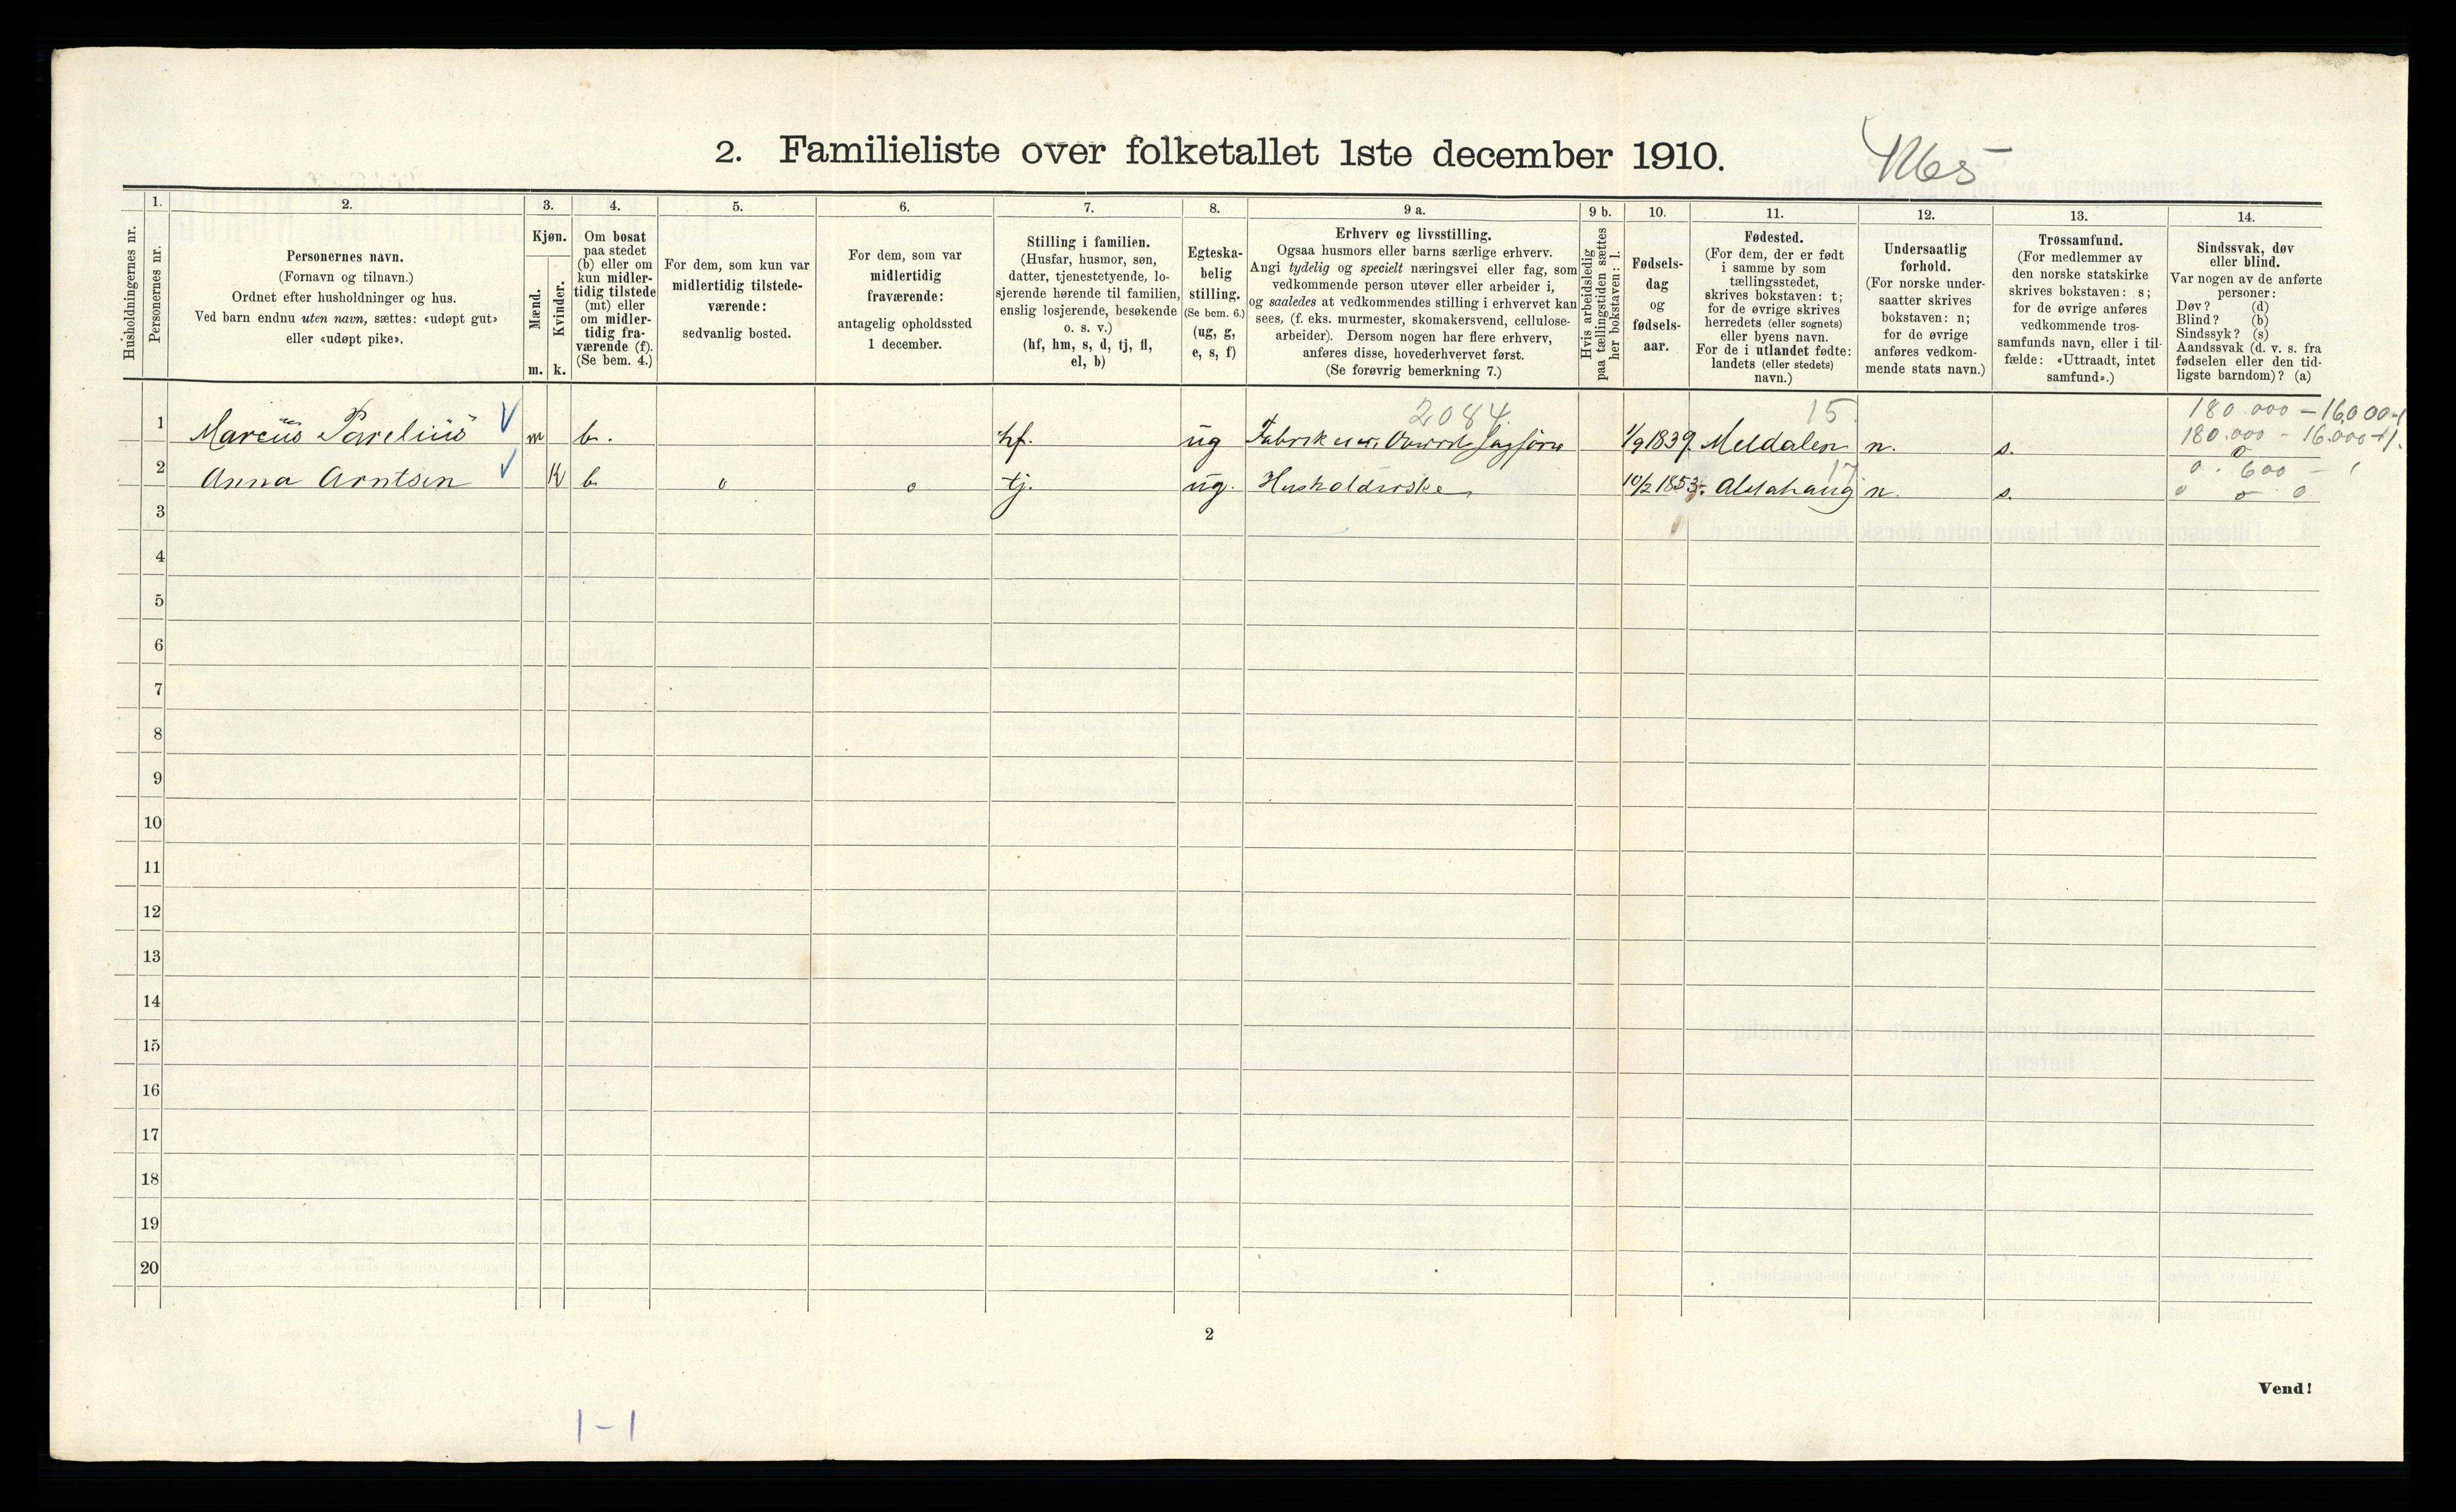 2. Familieliste over folketallet 1ste december 1910.
Husholdningernes nr.
1.
Personernes nr.
2.
Personernes navn.
(Fornavn og tilnavn.)
Ordnet efter husholdninger og hus.
Ved barn endnu uten navn, sættes: «udøpt gut»
eller «udøpt pike».
3.
Kjøn.
Mænd.
Kvinder.
m. k.
4.
Om bosat
paa stedet
(b) eller om
kun midler-
tidig tilstede
(mt) eller
om midler-
tidig fra-
værende (f).
(Se bem. 4.)
5.
For dem, som kun var
midlertidig tilstede-
værende:
sedvanlig bosted.
6.
For dem, som var
midlertidig
fraværende:
antagelig opholdssted
1 december.
7.
Stilling i familien.
(Husfar, husmor, søn,
datter, tjenestetyende, lo-
sjerende hørende til familien,
enslig losjerende, besøkende
o. s. v.)
(hf, hm, s, d, tj, fl,
el, b)
8.
Egteska-
belig
stilling.
(Se bem. 6.)
(ug, g,
e, s, f)
9 a.
Erhverv og livsstilling.
Ogsaa husmors eller barns særlige erhverv.
Angi tydelig og specielt næringsvei eller fag, som
vedkommende person utøver eller arbeider i,
og saaledes at vedkommendes stilling i erhvervet kan
sees, (f. eks. murmester, skomakersvend, cellulose-
arbeider). Dersom nogen har flere erhverv,
anføres disse, hovederhvervet først.
(Se forøvrig bemerkning 7.)
9 b.
Hvis arbeidsledig
paa tællingstiden sættes
her bokstaven: l.
10.
Fødsels-
dag
og
fødsels-
aar.
11.
Fødested.
(For dem, der er født
i samme by som
tællingsstedet,
skrives bokstaven: t;
for de øvrige skrives
herredets (eller sognets)
eller byens navn.
For de i utlandet fødte:
landets (eller stedets)
navn.)
12.
Undersaatlig
forhold.
(For norske under-
saatter skrives
bokstaven: n;
for de øvrige
anføres vedkom-
mende stats navn.)
13.
Trossamfund.
(For medlemmer av
den norske statskirke
skrives bokstaven: s;
for de øvrige anføres
vedkommende tros-
samfunds navn, eller i til-
fælde: «Uttraadt, intet
samfund».)
14.
Sindssvak, døv
eller blind.
Var nogen av de anførte
personer:
Døv? (d)
Blind? (b)
Sindssyk? (s)
Aandssvak (d. v. s. fra
fødselen eller den tid-
ligste barndom)? (a)
2084. 15 180.000 - 16,000-1
1 Marcus Parelius m b. hf. ug 1/9 1839. Meldalen n. s. 180.000 - 16.000 + 1. o
17 0. 600 - 1
2 Anna Arntsen K b o o tj. ug. Husholderske 10/2 1853. Alstahaug n. s. o o o
3
4
5
6
7
8
9
10
11
12
13
14
15
16
17
18
19
20
2
Vend!
1-1